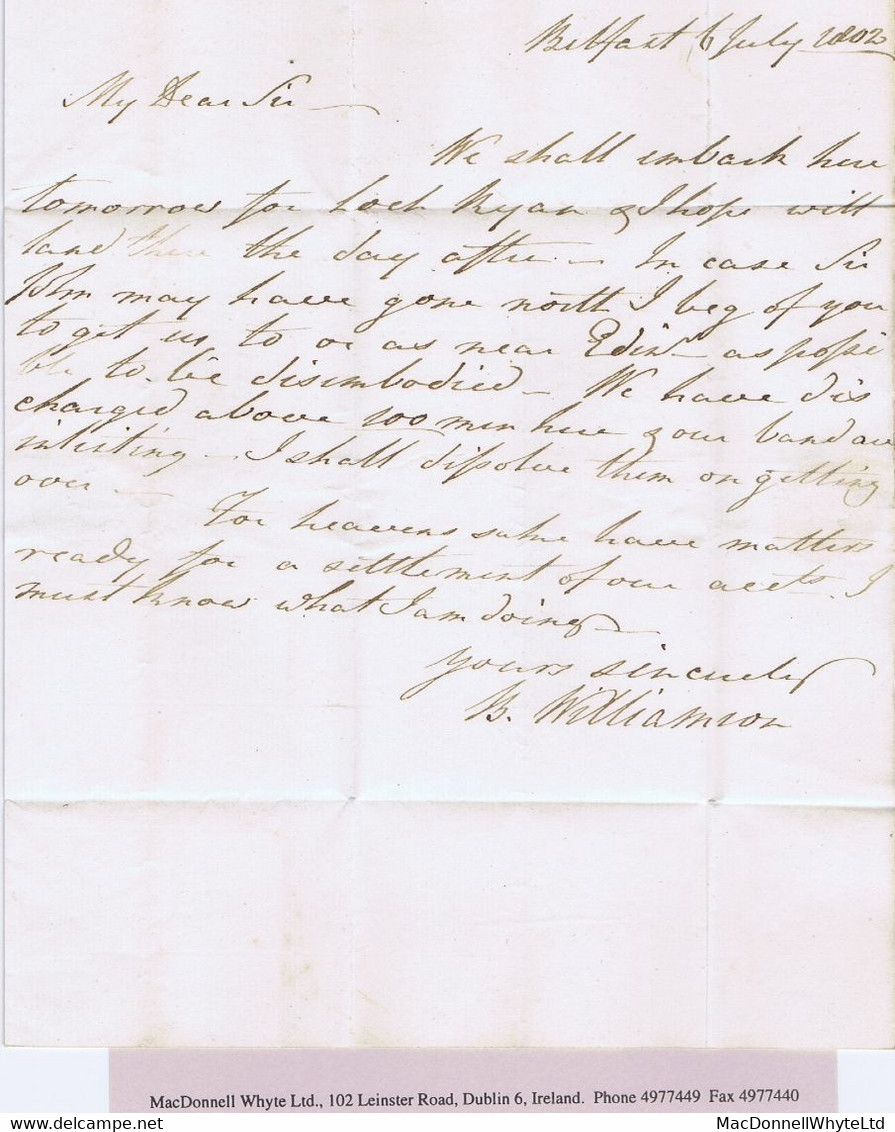 Belfast 6 July 1802
My Dear Sir —
We shall embark here
tomorrow for Loch Ryan & I hope will
land there the day after — In case Sir
John may have gone north I beg of you
to get us to or as near Edinr as possi
ble to be disembodied — We have dis
charged above 100 men here & our band are
inlisting — I shall dissolve them on getting
over —
For heavens sake have matters
ready for a settlement of our accts. I
must know what I am doing —
Yours sincerely
B. Williamson
MacDonnell Whyte Ltd., 102 Leinster Road, Dublin 6, Ireland. Phone 4977449 Fax 4977440
MacDonnellWhyteLtd